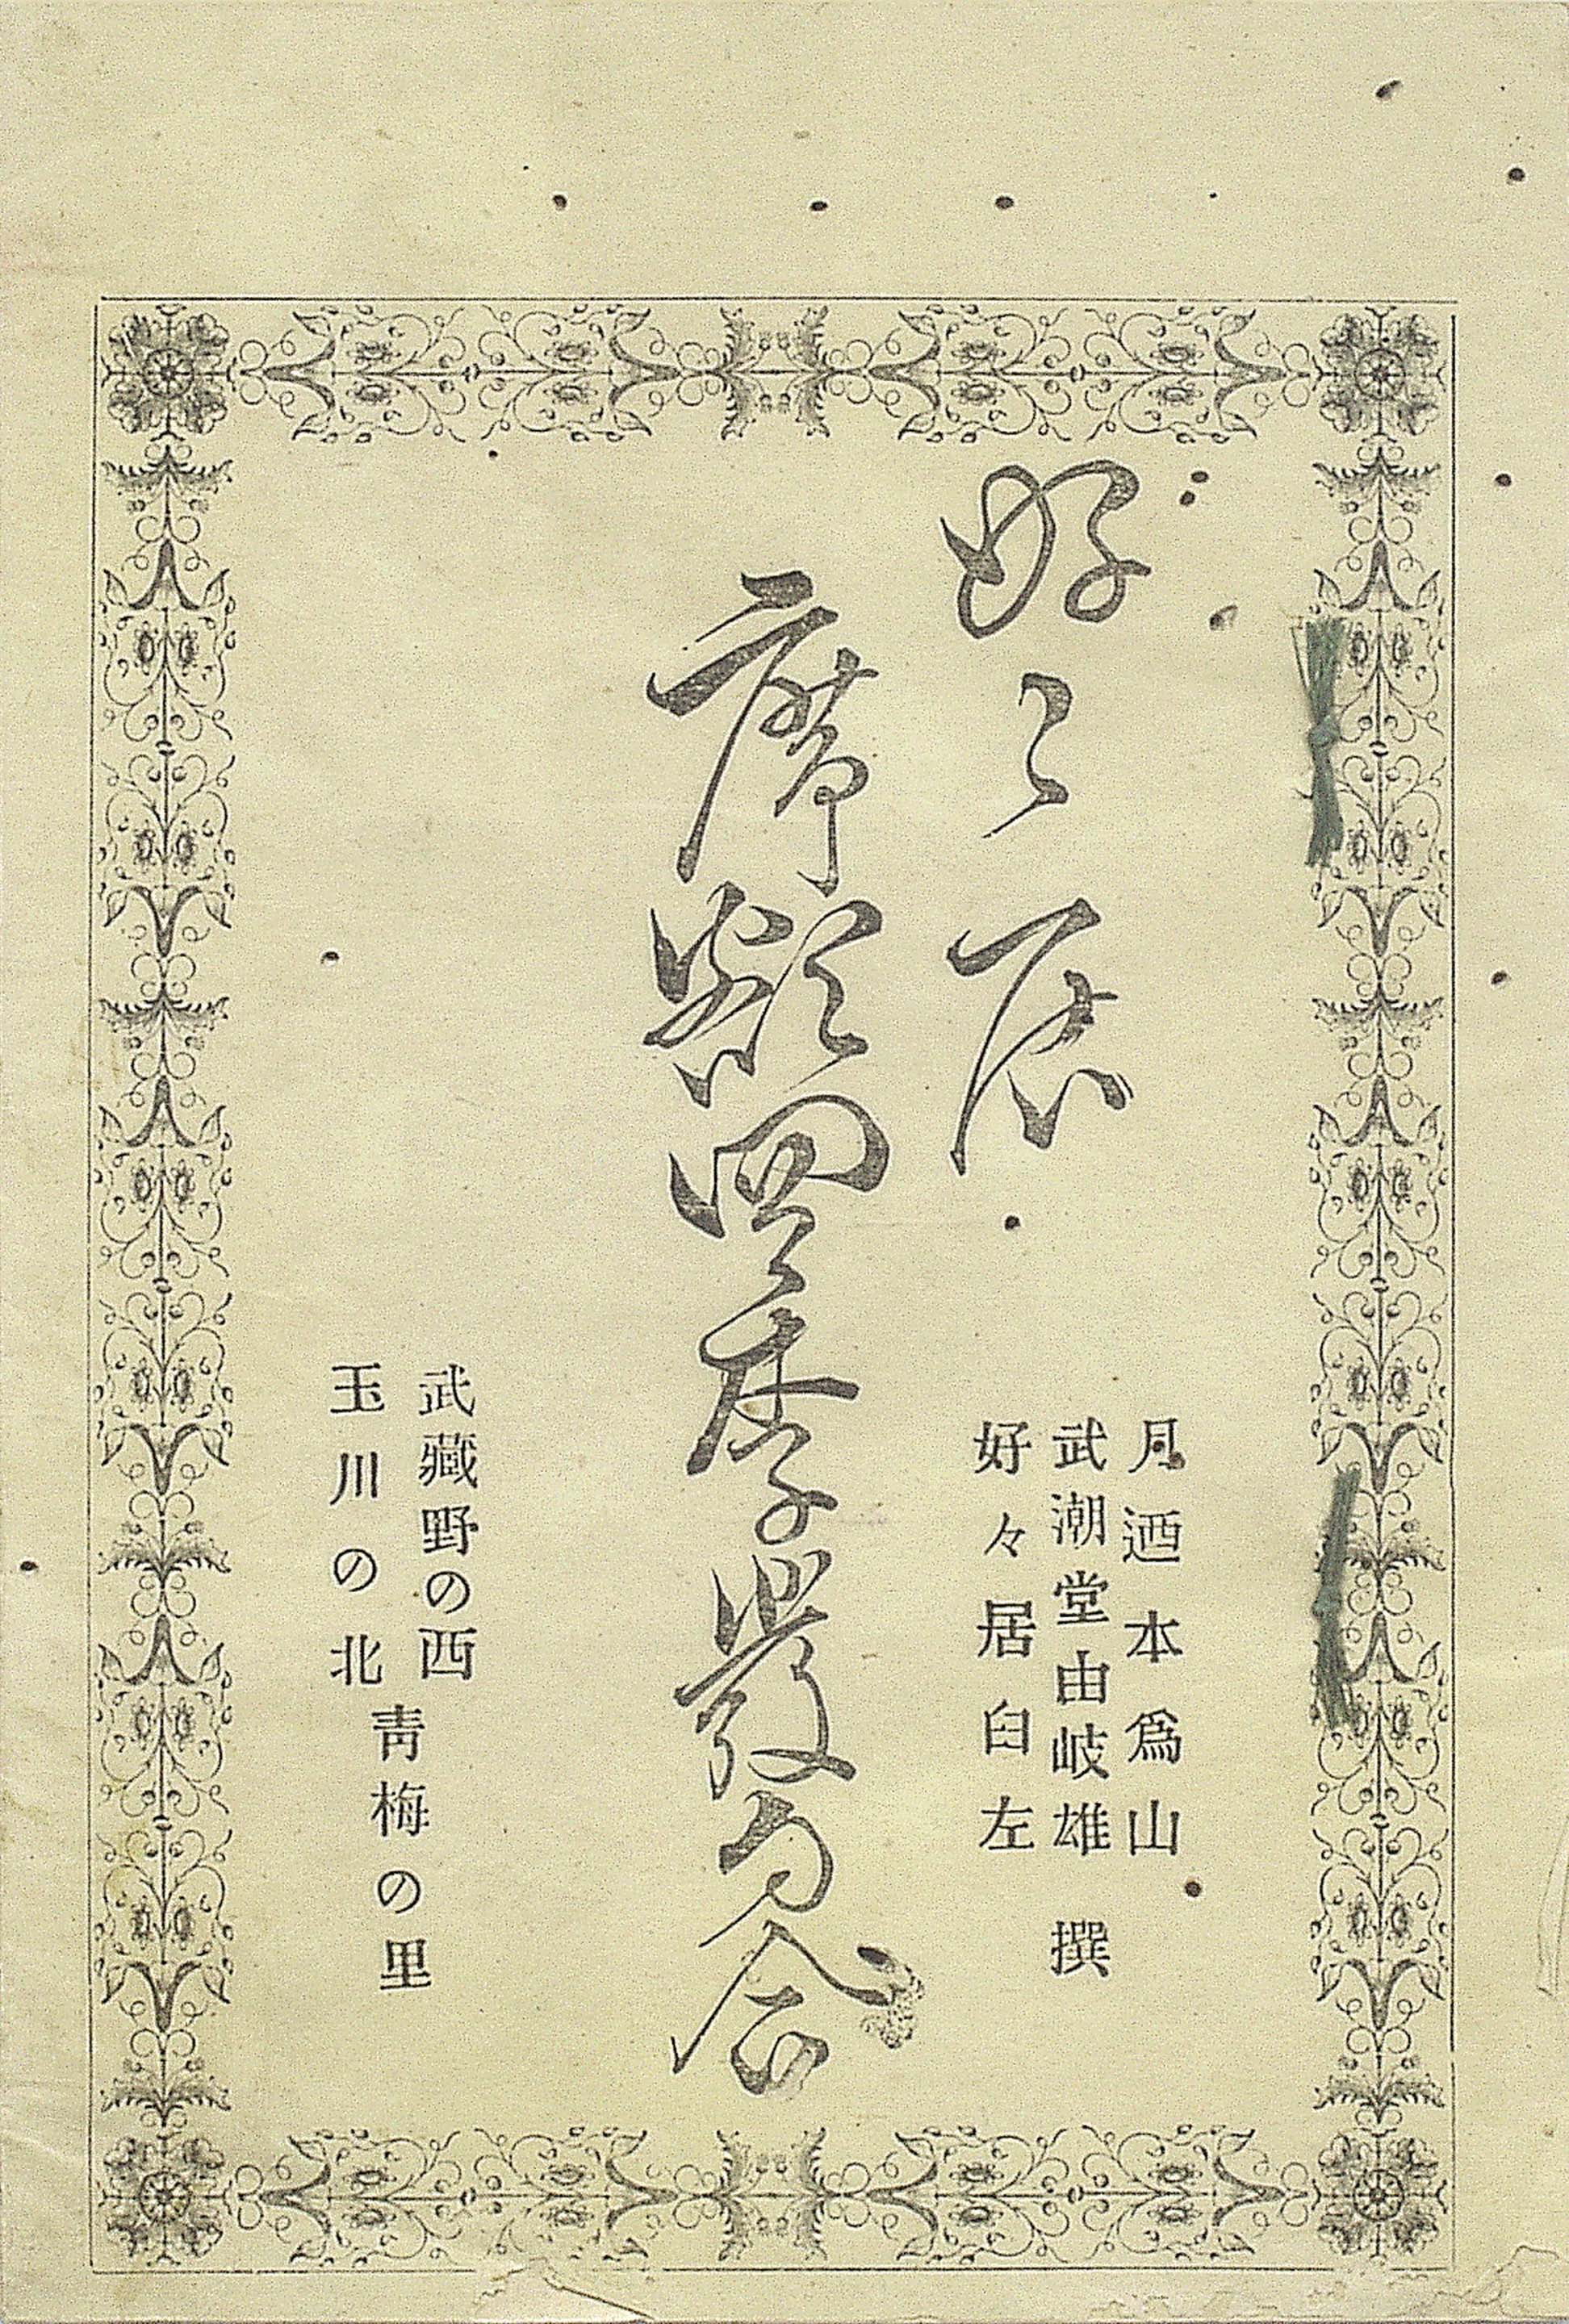 月迺本爲山
武潮堂由岐雄 撰
好々居臼左
好〻居
席 四季發句合
武藏野の西
玉川の北
青梅の里